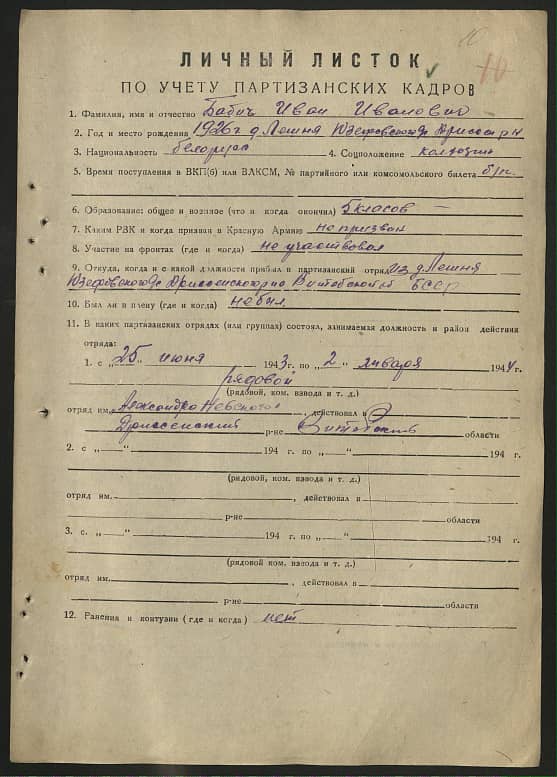 10
10
ЛИЧНЫЙ ЛИСТОК
ПО УЧЕТУ ПАРТИЗАНСКИХ КАДРОВ
1. Фамилия, имя и отчество Бабич Иван Иванович
2. Год и место рождения 1926г д. Лешня Юзефовского Дриссен. р-н
3. Национальность белорус 4. Соцположение колхозник
5. Время поступления в ВКП(б) или ВЛКСМ, № партийного или комсомольского билета б/п.
6. Образование: общее и военное (что и когда окончил) 5 класов —
7. Каким РВК и когда призван в Красную Армию не призван
8. Участие на фронтах (где и когда) не участвовал
9. Откуда, когда и с какой должности прибыл в партизанский отряд из д. Лешня
Юзефовского Дриссенского р-на Витебской БССР
10. Был ли в плену (где и когда) не был
11. В каких партизанских отрядах (или группах) состоял, занимаемая должность и район действия
отряда:
1. с „25" июня 1943г. по „2" января 1944г.
рядовой
(рядовой, ком. взвода и т. д.)
отряд им. Александра Невского, действовал в
Дриссенский р-не Витебской области
2. с „ " 194 г. по „ " 194 г.
(рядовой, ком. взвода и т. д.)
отряд им. , действовал в
р-не области
3. с. „ " 194 г. по „ " 194 г.
(рядовой, ком. взвода и т. д.)
отряд им. , действовал в
р-не области
12. Ранения и контузии (где и когда) нет